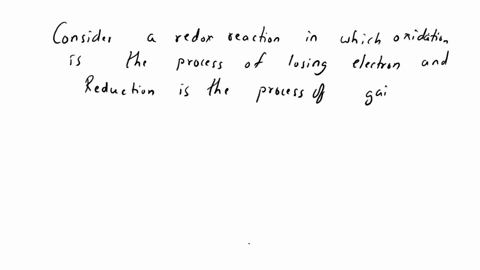 Consider a redox reaction in which oxidation
is the process of losing electron and
Reduction is the process of gai